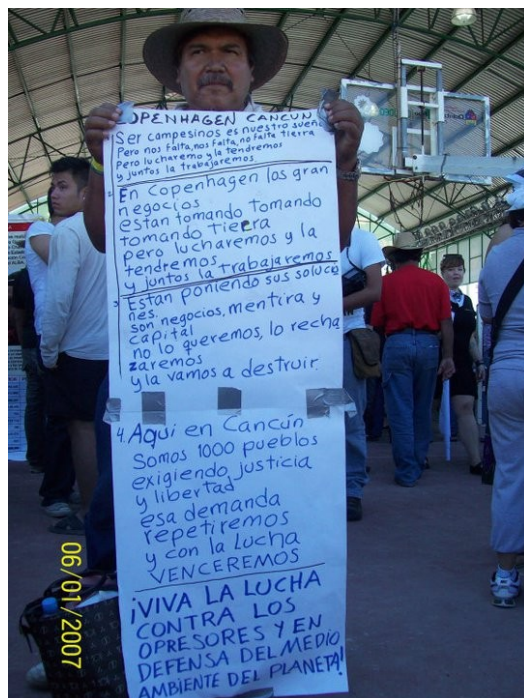 COPENHAGEN CANCÚN
Ser campesinos es nuestro sueño
Pero nos falta, nos falta, no falta tierra
Pero lucharemo y la tendremos
y juntos la trabajaremos
2. En Copenhagen los gran
negocios
estan tomando tomando
tomando tierra
pero lucharemos y la
tendremos
y juntos la trabajaremos
3 Están poniendo sus solucio
nes.
son negocios, mentira y
capital
no lo queremos, lo recha
zaremos
y la vamos a destruir
4. Aqui en Cancún
Somos 1000 pueblos
exigiendo justicia
y libertad
esa demanda
repetiremos
y con la Lucha
VENCEREMOS
¡VIVA LA LUCHA
CONTRA LOS
OPRESORES Y EN
DEFENSA DEL MEDIO
AMBIENTE DEL PLANETA!
06/01/2007